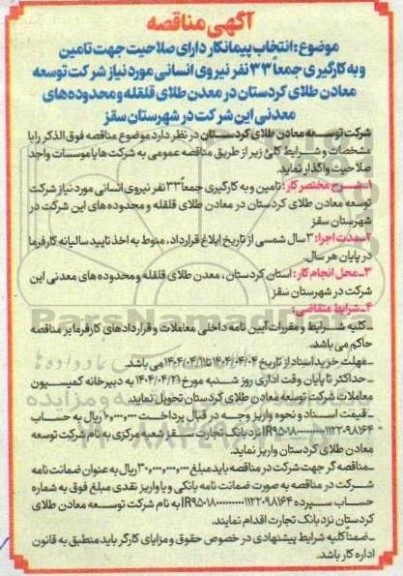 آگهی مناقصه
موضوع: انتخاب پیمانکار دارای صلاحیت جهت تامین
و به کارگیری جمعاً ۳۳ نفر نیروی انسانی مورد نیاز شرکت توسعه
معادن طلای کردستان در معدن طلای قلقله و محدوده‌های
معدنی این شرکت در شهرستان سقز
شرکت توسعه معادن طلای کردستان در نظر دارد موضوع مناقصه فوق الذکر را با
مشخصات و شرایط کلی زیر از طریق مناقصه عمومی به شرکت ها یا موسسات واجد
صلاحیت واگذار نماید.
۱ـ شرح مختصر کار: تامین و به کارگیری جمعاً ۳۳ نفر نیروی انسانی مورد نیاز شرکت
توسعه معادن طلای کردستان در معادن طلای قلقله و محدوده های این شرکت در
شهرستان سقز
۲ـ مدت اجرا: ۳ سال شمسی از تاریخ ابلاغ قرارداد، منوط به اخذ تایید سالیانه کارفرما
در پایان هر سال.
۳ـ محل انجام کار: استان کردستان، معدن طلای قلقله و محدوده های معدنی این
شرکت در شهرستان سقز
۴ـ شرایط متقاضی:
ـ کلیه شرایط و مقررات آیین نامه داخلی معاملات و قراردادهای کارفرما بر مناقصه
حاکم می باشد.
ـ مهلت خرید اسناد از تاریخ ۱۴۰۴/۰۴/۰۴ تا ۱۴۰۴/۰۴/۱۱ می باشد.
ـ حداکثر تا پایان وقت اداری روز شنبه مورخ ۱۴۰۴/۰۴/۲۱ به دبیرخانه کمیسیون
معاملات شرکت توسعه معادن طلای کردستان تحویل نماید.
ـ قیمت اسناد و نحوه واریز وجه در قبال پرداخت ریال به حساب
نزد بانک تجارت سقز شعبه مرکزی به نام شرکت توسعه
معادن طلای کردستان واریز نماید.
ـ مناقصه گر جهت شرکت در مناقصه باید مبلغ ریال به عنوان ضمانت نامه
شرکت در مناقصه به صورت ضمانت نامه بانکی و یا واریز نقدی مبلغ فوق به شماره
حساب سپرده به نام شرکت توسعه معادن طلای
کردستان نزد بانک تجارت اقدام نمایند.
ـ ضمناً کلیه شرایط پیشنهادی در خصوص حقوق و مزایای کارگر باید منطبق به قانون
اداره کار باشد.
ParsNamadData